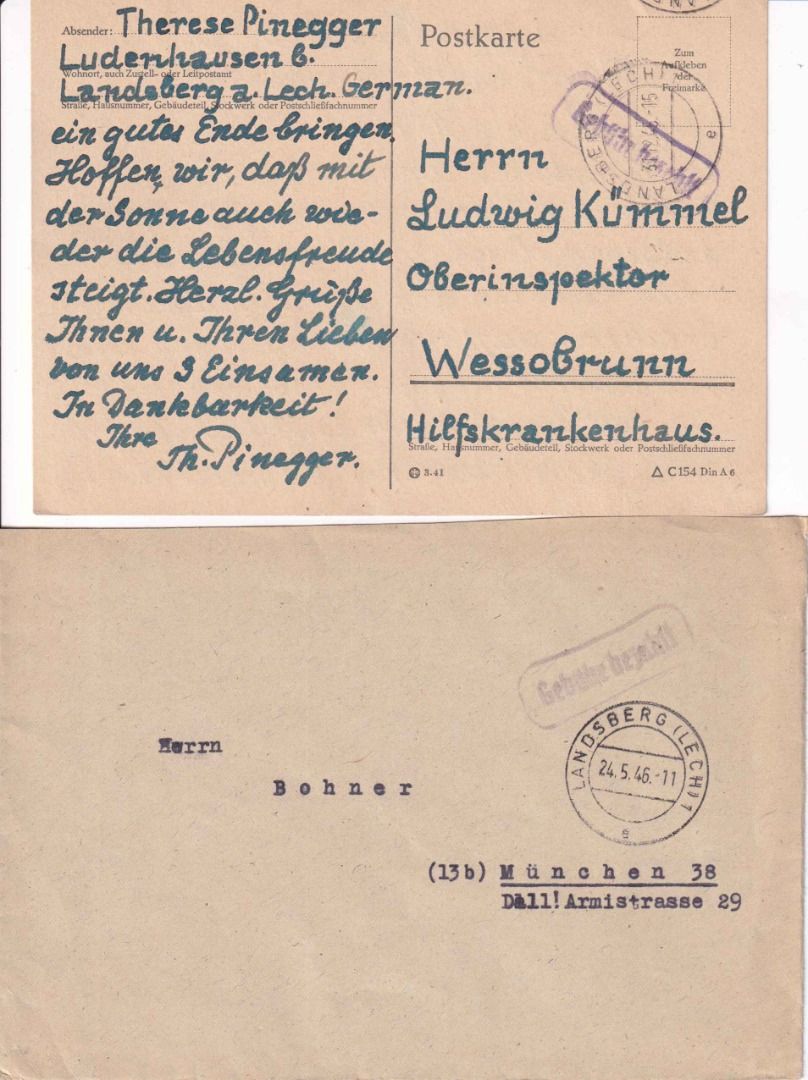 Absender: Therese Pinegger
Ludenhausen b.
Wohnort, auch Zustell- oder Leitpostamt
Landsberg a. Lech. German.
Straße, Hausnummer, Gebäudeteil, Stockwerk oder Postschließfachnummer
ein gutes Ende bringen.
Hoffen, wir, daß mit
der Sonne auch wie-
der die Lebensfreude
steigt. Herzl. Grüße
Ihnen u. Ihren Lieben
von uns 3 Einsamen.
In Dankbarkeit!
Ihre
Th. Pinegger.
Postkarte
Zum
Aufkleben
der
Freimarke
LANDSBERG (LECH)
a
Gebühr bezahlt
Herrn
Ludwig Kümmel
Oberinspektor
Wessobrunn
Hilfskrankenhaus.
Straße, Hausnummer, Gebäudeteil, Stockwerk oder Postschließfachnummer
3.41
C 154 Din A 6
Gebühr bezahlt
LANDSBERG (LECH) 1
24.5.46.-11
e
Herrn
Bohner
(13b) München 38
Dall!Armistrasse 29